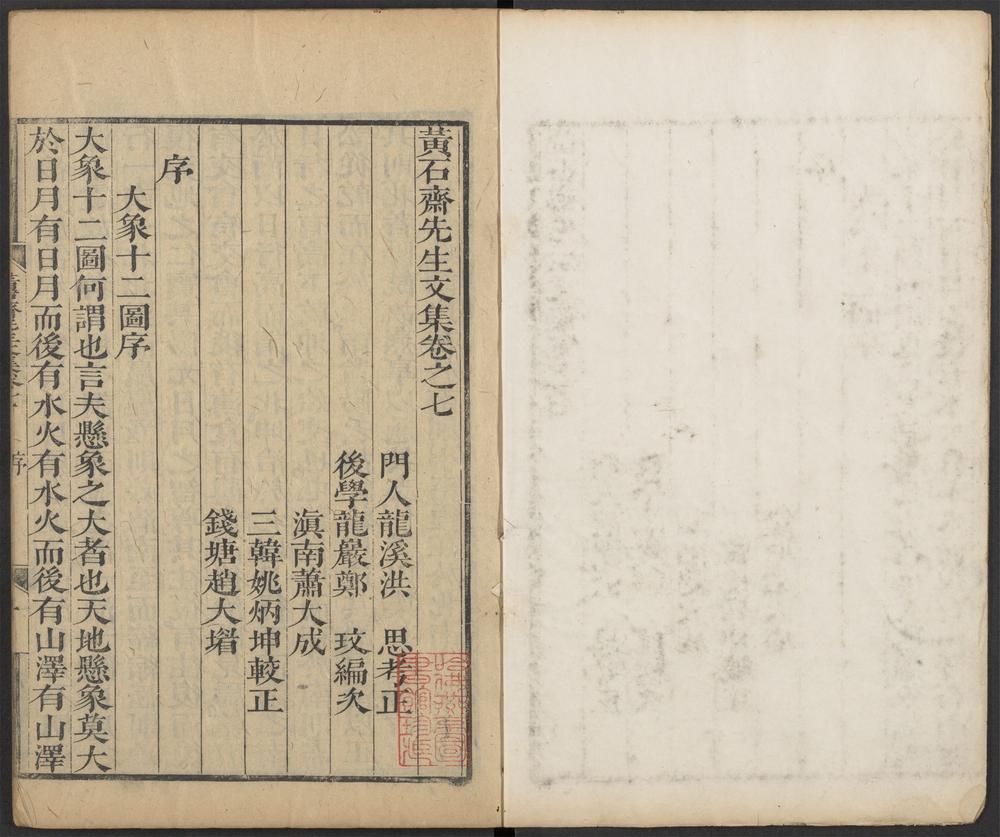 黃石齋先生文集卷之七
門人龍溪洪　思考正
後學龍巖鄭　玟編次
滇南蕭大成
三韓姚炳坤較正
錢塘趙大堦
序
大象十二圖序
大象十二圖何謂也言夫懸象之大者也天地懸象莫大
於日月有日月而後有水火有水火而後有山澤有山澤
序